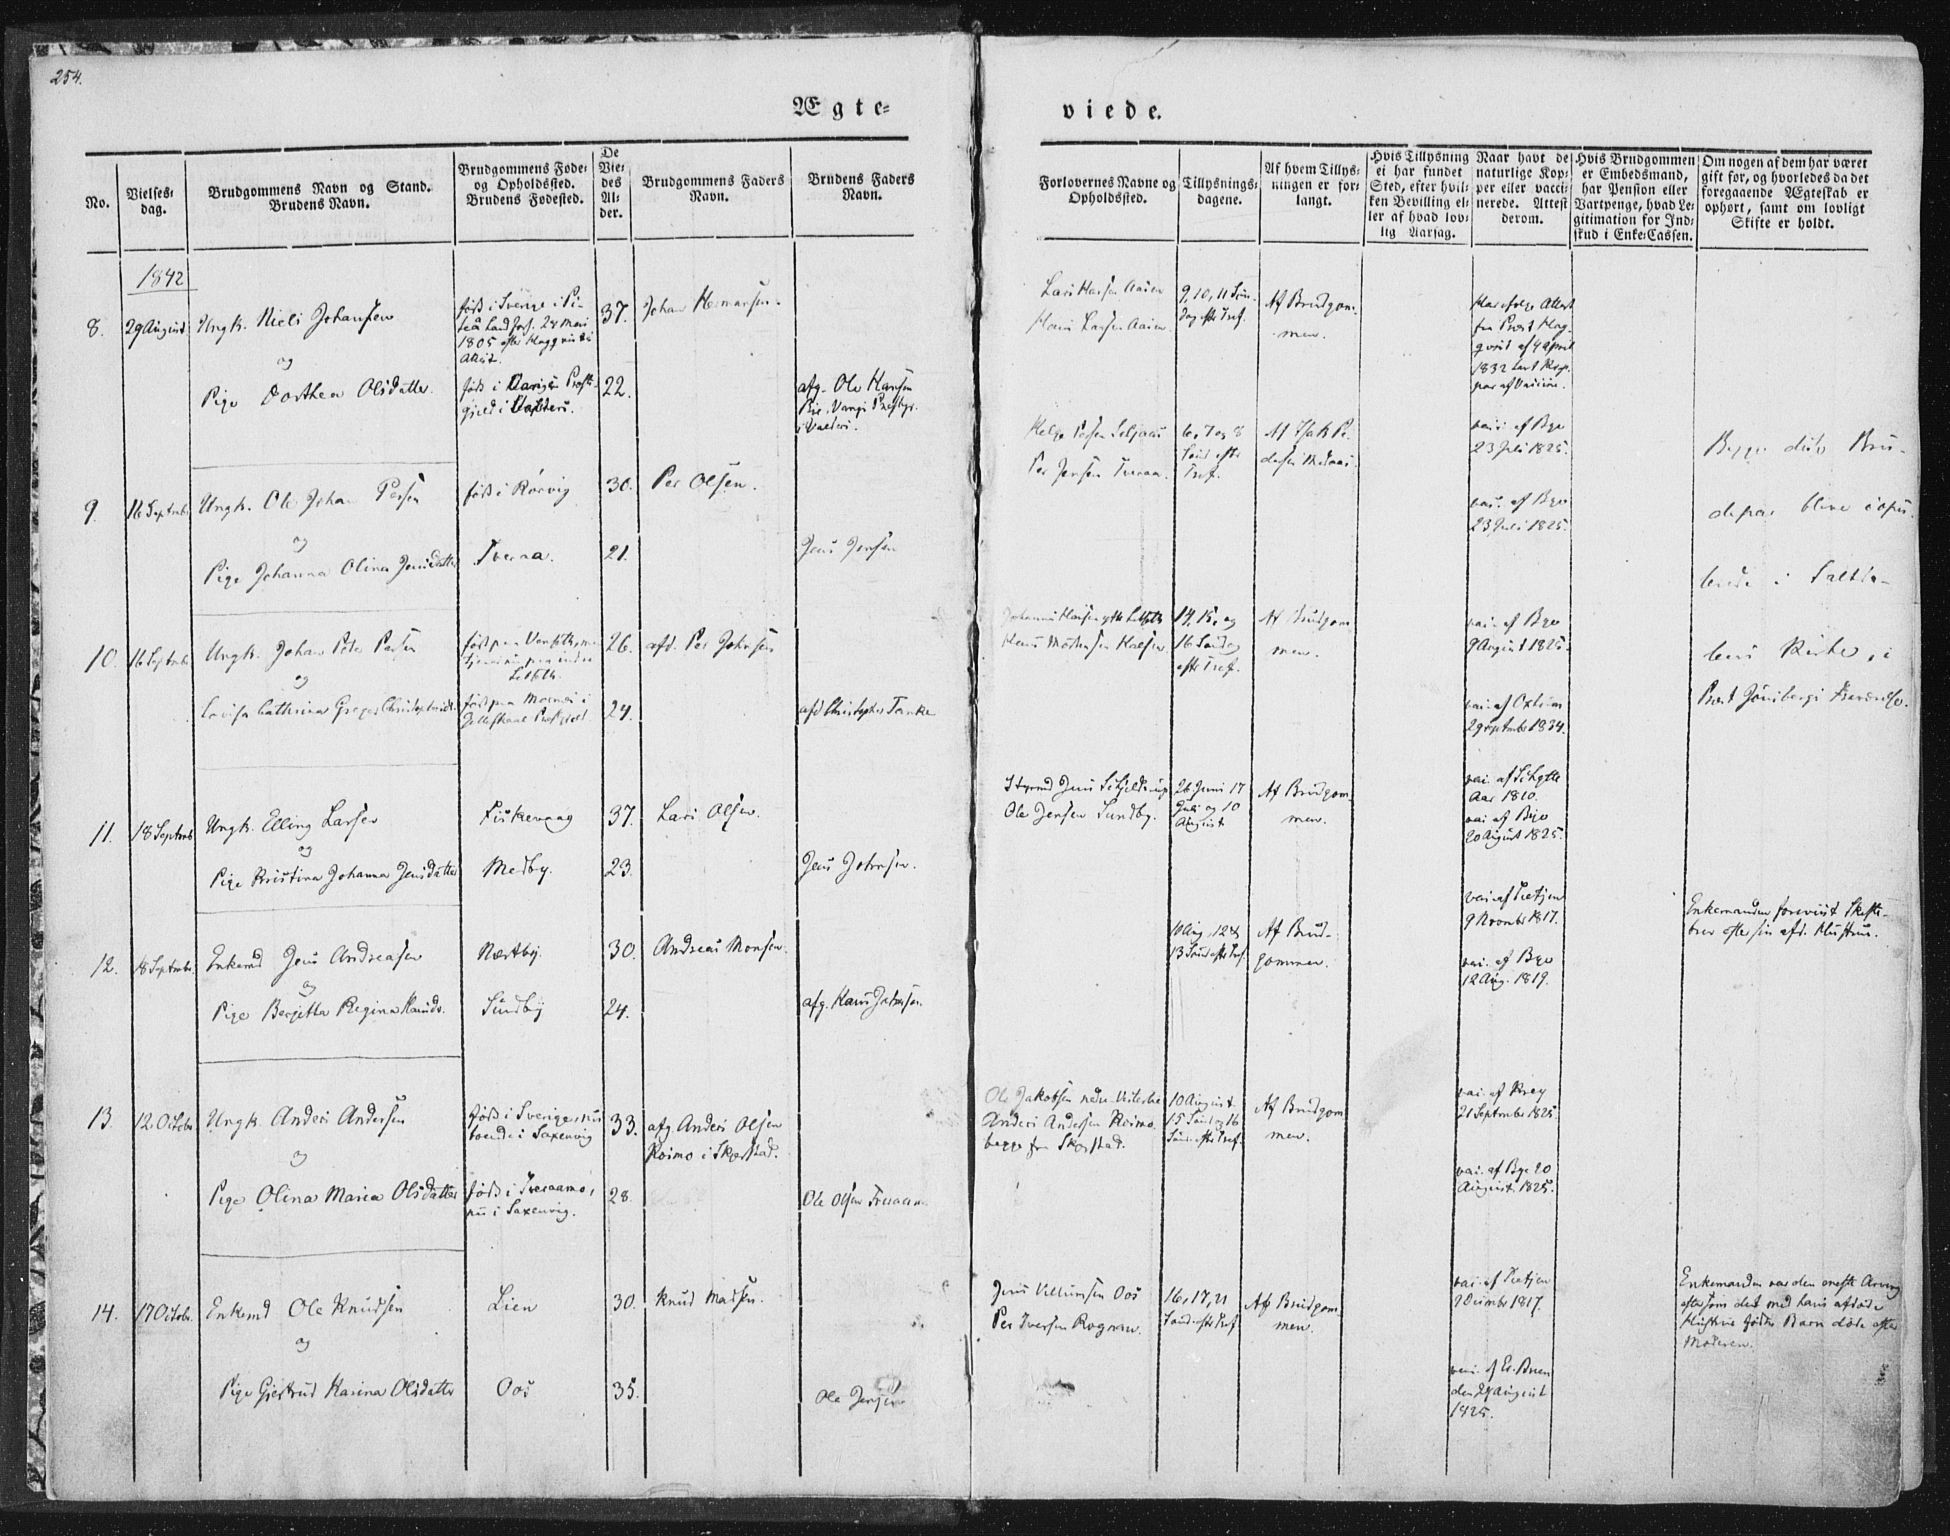 254.
Ægte-
viede.
No.
Vielses-
dag.
Brudgommens Navn og Stand.
Brudens Navn.
Brudgommens Føde-
og Opholdssted.
Brudens Fødested.
De
Vie-
des
Al-
der.
Brudgommens Faders
Navn.
Brudens Faders
Navn.
Forlovernes Navne og
Opholdssted.
Tillysnings-
dagene.
Af hvem Tillys-
ningen er for-
langt.
Hvis Tillysning
ei har fundet
Sted, efter hvil-
ken Bevilling el-
ler af hvad lov-
lig Aarsag.
Naar havt de
naturlige Kop-
per eller vacci-
nerede. Attest
derom.
Hvis Brudgommen
er Embedsmand,
har Pension eller
Vartpenge, hvad Le-
gitimation for Ind-
skud i Enke-Cassen.
Om nogen af dem har været
gift før, og hvorledes da det
foregaaende Ægteskab er
ophørt, samt om lovligt
Skifte er holdt.
1842
8. 29 August Ungk. Niels Johansen
og
Pige Dorthea Olsdatter
født i Sverige i Pi-
teå Landfors. 24 Mars
1805 efter
Attest.
37. Johan Hermansen.
født i
gield i
22.
afg. Ole Hansen
i Valders.
Lars Hansen
Hans Larsen
9, 10, 11 Sön-
dag efter Tref.
Af Brudgom-
men.
Attest
fra Præst Hag-
qvist af 4 April
1832
9. 16 Septembr Ungk. Ole Johan Persen
og
Pige Johanna Olina Jensdatter
født i Rørvig
Tveraa.
30.
21.
Per Olsen.
Jens Jensen
Helge Persen
Per Jensen Tveraa.
6, 7 og 8
Sönd efter
Tref.
Af Isak Pe-
vac. af Bye
23 Juli 1825.
vac. af Bye
23 Juli 1825.
Begge disse Bru-
depar bleve copu-
lerede i Saltda-
lens Kirke, i
Præst
10. 16 Septembr Ungk. Johan Peter Persen
og
Lovisa Cathrina Christophersd.
født paa
Gilleskaal Præstgield.
26.
24.
afd. Per Johnsen
afd Christopher Tanke
14, 15, og
16 Söndag
efter Tref.
Af Brudgom
men.
vac. af Bye
9 August 1825.
29 Septembr 1834.
11. 18 Septemb Ungk. Elling Larsen
og
Pige Kristina Johanna Jensdatter
Fiskevaag
Medby.
37.
23.
Lars Olsen.
Jens Johnsen.
Jens Schjeldrup
Ole Jensen Sundby.
26 Juni 17
Juli og 10
August
Af Brudgom-
men.
vac. af Schytte
Aar 1810.
vac. af Bye
20 August 1825.
12. 18 Septembr. Enkemd Jens Andreasen
og
Pige Berjetta Regina Hansd.
Næstby.
Sundby
30.
24.
Andreas Monsen.
afg. Hans Johnsen.
10 Aug, 12 &
13 Sönd efter Tref.
Af Brud-
gommen.
vac. af Tietjen
9 Novembr 1817.
vac. af Bye
12 Aug. 1819.
Enkemanden foreviist Skifte-
brev efter sin afd. Hustrue.
13. 12 Octobr Ungk. Anders Andersen
og
Pige Olina Maria Olsdatter
født i Sverige, nu
boende i Saxenvig
født i Tveraamo,
nu i Saxenvig.
33.
28.
afg Anders Olsen
Roimo i Skjerstad.
Ole Olsen
Ole Jakobsen
Anders Andersen Roimo
begge fra Skjerstad.
10 August
15 Sönd og 16
Sönd efter Tref.
Af Brudgom
men.
vac. af Krey
21 Septembr 1825.
vac. af Bye 20
August 1825.
14. 17 Octobr. Enkemd Ole Knudsen
og
Pige Gjertrud Karina Olsdatter
Lien
Oos
30.
35.
Knud Madsen.
Ole Jensen
Jens Villumsen Oos
Per Iversen Rognan.
16, 17, 21
Sönd. efter Tref.
Af Brudgom
men.
vac. af Tietjen
9 Decembr 1817.
vac. af
den 24 August
1825.
Enkemanden var den eneste Arving
eftersom det med hans afdøde
Hustrue fødte Barn døde efter
Moderen.